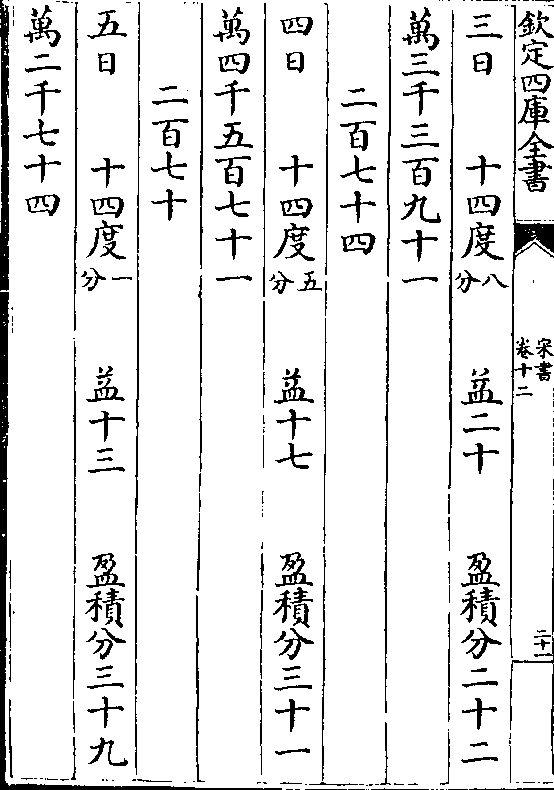 欽定四庫全書
宋書
卷十二
二十一
三日 十四度八分 益二十 盈積分二十二
萬三千三百九十一
二百七十四
四日 十四度五分 益十七 盈積分三十一
萬四千五百七十一
二百七十
五日 十四度一分 益十三 盈積分三十九
萬二千七十四